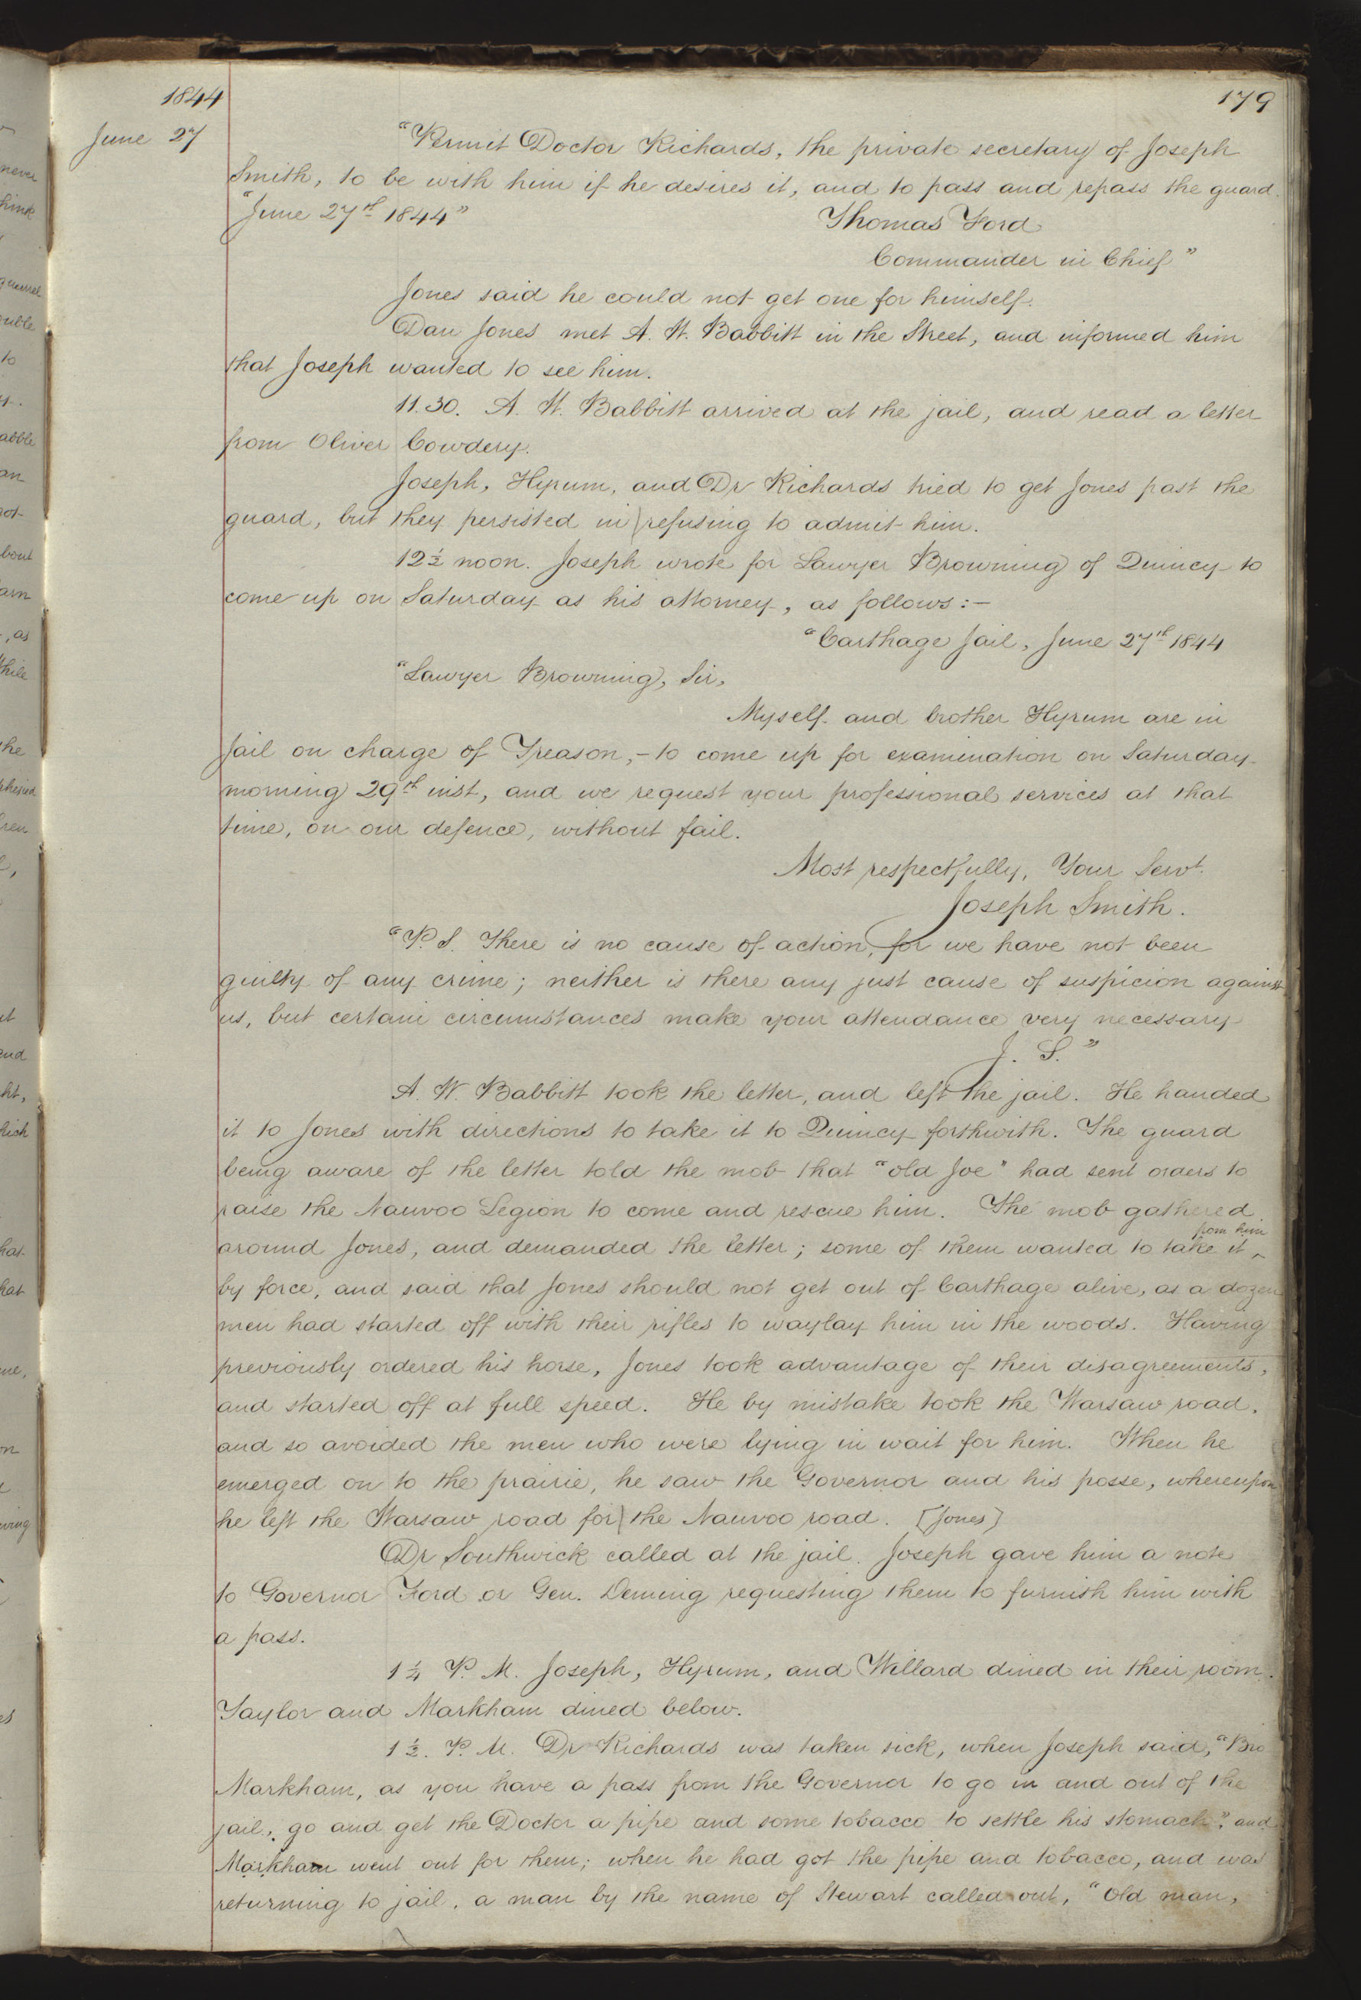 1844
179
June 27
"Permit Doctor Richards, the private secretary of Joseph
Smith, to be with him if he desires it, and to pass and repass the guard.
"June 27th 1844"
Thomas Ford
Commander in Chief"
Jones said he could not get one for himself.
Dan Jones met A. W. Babbitt in the Street, and informed him
that Joseph wanted to see him.
11.30. A. W. Babbitt arrived at the jail, and read a letter
from Oliver Cowdery.
Joseph, Hyrum, and Dr Richards tried to get Jones past the
guard, but they persisted in refusing to admit him.
12½ noon. Joseph wrote for Lawyer Browning of Quincy to
come up on Saturday as his attorney, as follows:—
"Carthage Jail, June 27th 1844
"Lawyer Browning, Sir,
Myself and brother Hyrum are in
Jail on charge of Treason,— to come up for examination on Saturday
morning 29th inst, and we request your professional services at that
time, on our defence, without fail.
Most respectfully, Your Servt.
Joseph Smith.
"P. S. There is no cause of action, for we have not been
guilty of any crime; neither is there any just cause of suspicion against
us, but certain circumstances make your attendance very necessary
J. S."
A. W. Babbitt took the letter, and left the jail. He handed
it to Jones with directions to take it to Quincy forthwith. The guard
being aware of the letter told the mob that "old Joe" had sent orders to
raise the Nauvoo Legion to come and rescue him. The mob gathered
from him
around Jones, and demanded the letter; some of them wanted to take it ^
by force, and said that Jones should not get out of Carthage alive, as a dozen
men had started off with their rifles to waylay him in the woods. Having
previously ordered his horse, Jones took advantage of their disagreements,
and started off at full speed. He by mistake took the Warsaw road,
and so avoided the men who were lying in wait for him. When he
emerged on to the prairie, he saw the Governor and his posse, whereupon
he left the Warsaw road for the Nauvoo road. [Jones]
Dr Southwick called at the jail. Joseph gave him a note
to Governor Ford or Gen. Deming requesting them to furnish him with
a pass.
1¼ P. M. Joseph, Hyrum, and Willard dined in their room.
Taylor and Markham dined below.
1½. P. M. Dr Richards was taken sick, when Joseph said, "Bro
Markham, as you have a pass from the Governor to go in and out of the
jail, go and get the Doctor a pipe and some tobacco to settle his stomach", and
Markham went out for them; when he had got the pipe and tobacco, and was
returning to jail, a man by the name of Stewart called out, "old man,